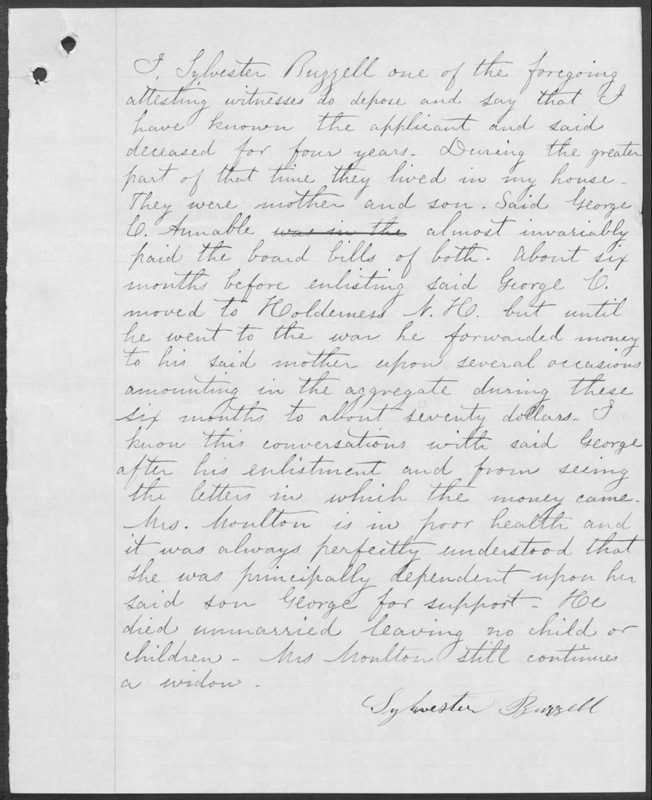 I, Sylvester Buzzell one of the foregoing
attesting witnesses do depose and say that I
have known the applicant and said
deceased for four years. During the greater
part of that time they lived in my house.
They were mother and son. Said George
C. Annable was in the almost invariably
paid the board bills of both. About six
months before enlisting said George C.
moved to Holderness N.H. but until
he went to the war he forwarded money
to his said mother upon several occasions
amounting in the aggregate during these
six months to about seventy dollars. I
know this conversations with said George
after his enlistment and from seeing
the letters in which the money came.
Mrs. Moulton is in poor health and
it was always perfectly understood that
she was principally dependent upon her
said son George for support. He
died unmarried leaving no child or
children. Mrs Moulton still continues
a widow.
Sylvester Buzzell